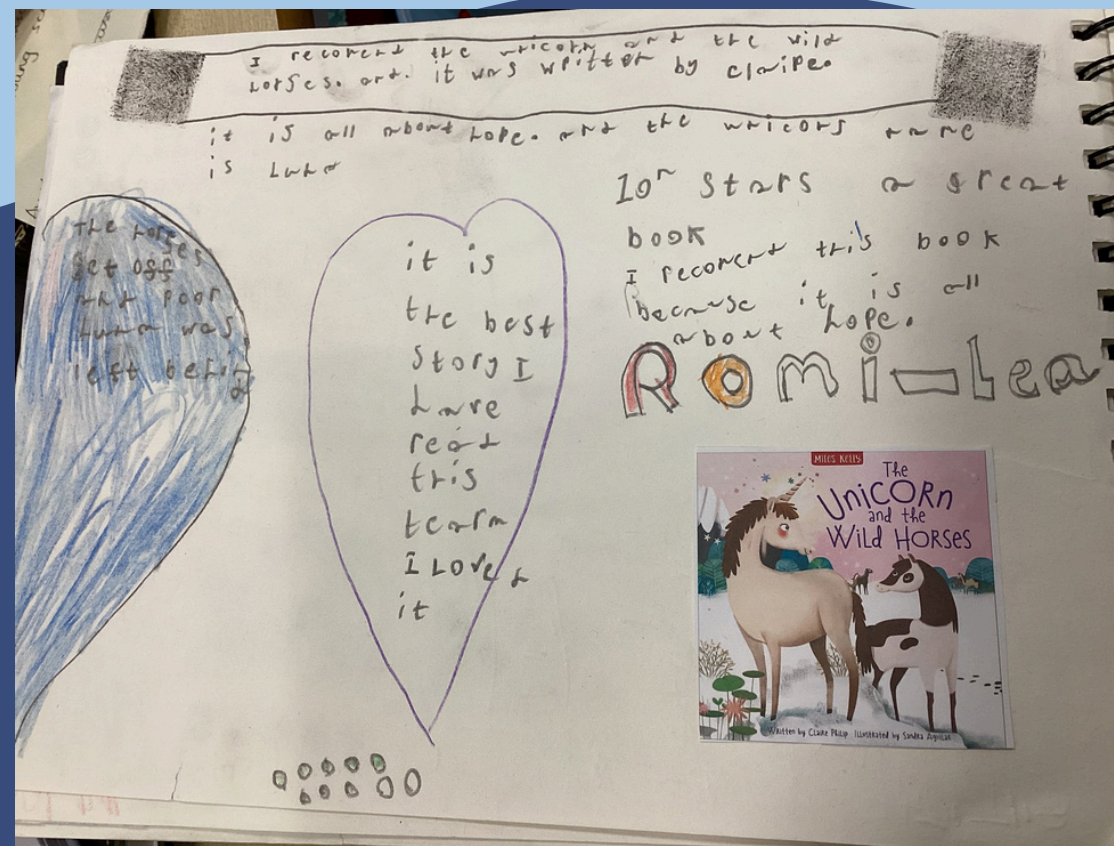 I recomend the unicorn and the wild
horses. and. it was written by claire.
it is all about hope. and the unicors name
is luna
the horses
set off
and poor
luna was
left behind
it is
the best
story I
have
read
this
tearm
I Loved
it
10n stars a great
book
I recomend this book
because it is all
about hope.
Romi-Lea
MILES KELLY
The
UNICORN
and the
WILD HORSES
Written by Claire Philip Illustrated by Sandra Aguilar